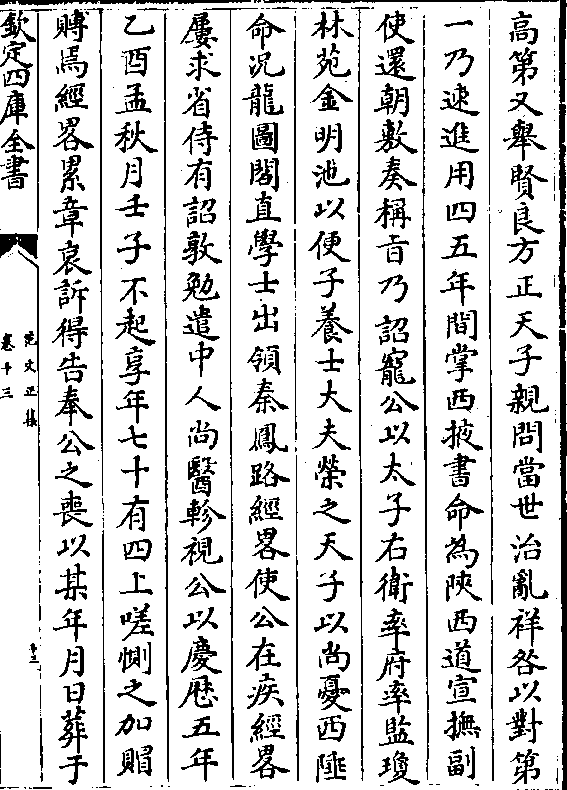 高第又舉賢良方正天子親問當世治亂祥咎以對第
一乃速進用四五年間掌西掖書命為陝西道宣撫副
使還朝敷奏稱旨乃詔寵公以太子右衛率府率監瓊
林苑金明池以便子養士大夫榮之天子以尚憂西陲
命況龍圖閣直學士出領秦鳳路經畧使公在疾經畧
屢求省侍有詔敦勉遣中人尚醫軫視公以慶厯五年
乙酉孟秋月壬子不起享年七十有四上嗟惻之加賵
賻焉經畧累章哀訴得告奉公之喪以某年月日葬于
欽定四庫全書
范文正集
卷十三
十三